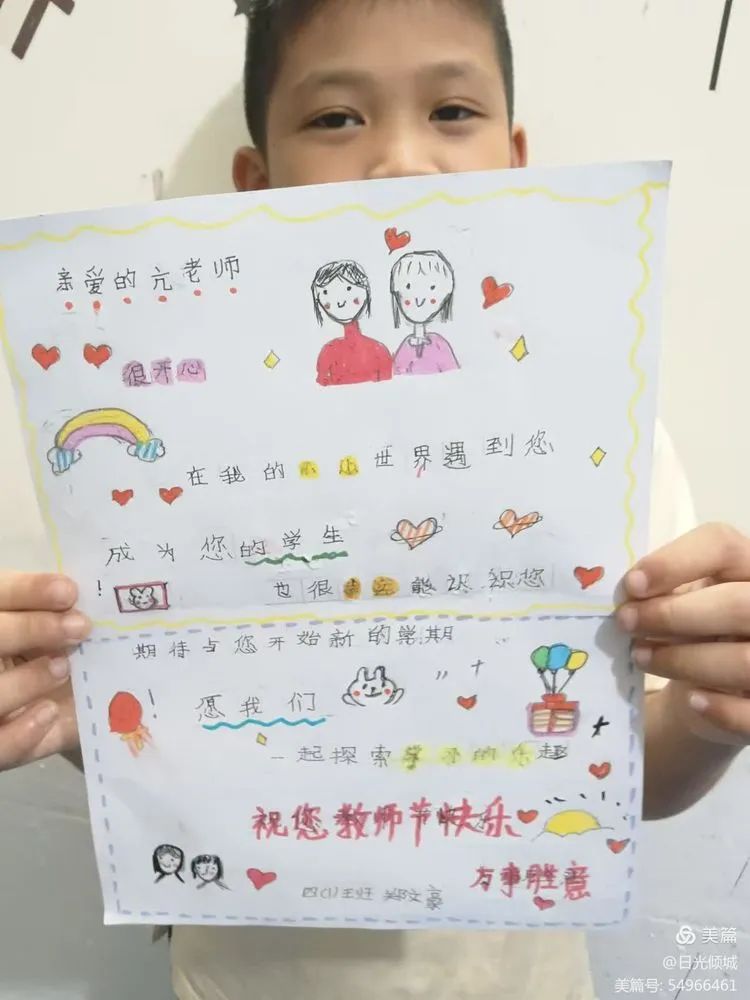 亲爱的亢老师
很开心
在我的小小世界遇到您
成为您的学生
! 也很幸运能认识您
期待与您开始新的学期
! 愿我们
一起探索学习的乐趣
祝您教师节快乐
万事胜意
四(1)王 郑文豪
美篇
@日光倾城
美篇号: 54966461